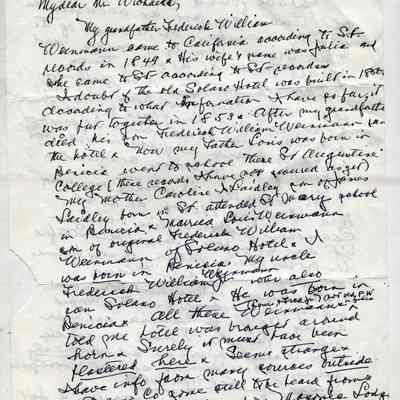 My dear Mr.
My grandfather Frederick William
Weinmann came to California according to St.
records in 1849 & His wife's name was Julia and
she came to St. according to St. records
I doubt if the old Solano Hotel was built in 1850
according to what information I have so far, it
was put together in 1853 & After my grandfather
died his son Frederick William Weinmann ran
the hotel & Now my father Louis was born in
Benicia went to school there St Augustine
College (these records I have not secured as yet)
My mother Caroline Laidley of James
Laidley born in St. attended St Mary school
in Benicia & married Louis Weinmann
son of original Frederick William
Weinmann of Solano Hotel &
was born in Benicia. My uncle
Frederick William Weinmann who also
ran Solano Hotel & He was born in
Benicia & All these Weinmann's
told me hotel was brought around
horn & Surely it must have been
here & Seems strange &
I have info from many sources outside
some still to be heard from
Masonic Lodge